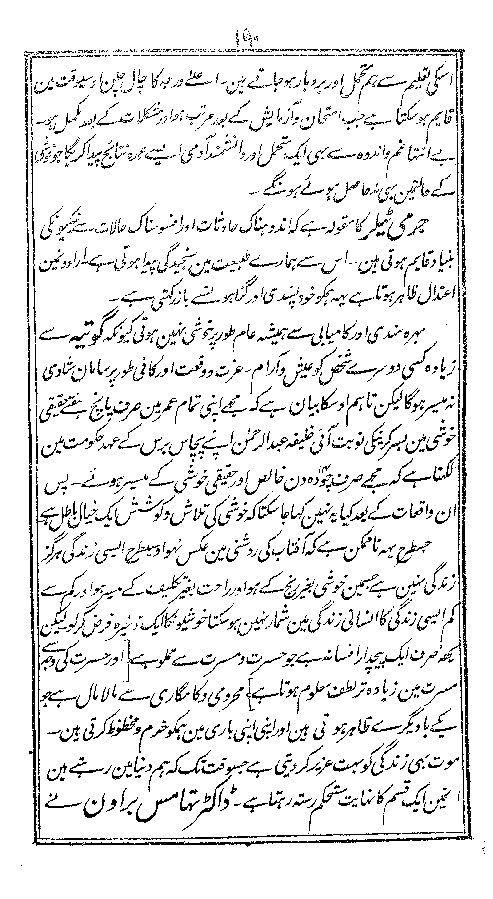 ۱۹۰
اسکی تعلیم سے ہم متحمل اور بردبار ہو جاتے ہین۔ اعلےٰ درجہ کا چال چلن اوسیوقت مین
قایم ہو سکتا ہے جب امتحان و آزمایش کے بعد مرتب ہو اور مشکلات کے بعد مکمل ہو۔
بے انتہا غم و اندوہ سے بھی ایک متحمل اور دانشمند آدمی ایسے عمدہ نتایج پیدا کریگا جو خوشی
کے حالتمین بھی نہ حاصل ہوئے ہونگے۔
جرمی ٹیلر کا مقولہ ہے کہ اندوہناک حادثات اور افسوسناک حالات سے نیکیونکی
بنیاد قایم ہوتی ہین۔ اس سے ہمارے طبیعت مین سنجیدگی پیدا ہوتی ہے۔ ارادونمین
اعتدال ظاہر ہوتا ہے یہہ ہمکو خود پسندی اور گناہونسے باز رکتی ہے۔
بہرہ مندی اور کامیابی سے ہمیشہ عام طور پر خوشی نہین ہوتی کیونکہ گوتیہ سے
زیادہ کسی دوسرے شخص کو عیش و آرام۔ عزت و وقعت اور کافی طور پر سامان شادی
نہ میسر ہوگا لیکن تاہم اوسکا بیان ہے کہ مجھے اپنی تمام عمر مین صرف پانچ ہفتے حقیقی
خوشی مین بسر کرنیکی نوبت آئی خلیفہ عبدالرحمٰن اپنے پچاس برس کے عہد حکومت مین
لکھتا ہے کہ مجھے صرف چودہ دن خالص اور حقیقی خوشی کے میسر ہوئے۔ پس
ان واقعات کے بعد کیا یہ نہین کہا جا سکتا کہ خوشی کی تلاش و کوشش ایک خیال باطل ہے
جسطرح یہہ ناممکن ہے کہ آفتاب کی روشنی مین عکس نہو اوسیطرح ایسی زندگی ہرگز
زندگی نہین ہے جسمین خوشی بغیر رنج کے ہو اور راحت بغیر تکلیف کے میسر ہو اور کم سے
کم ایسی زندگی کا انسانی زندگی مین شمار نہین ہو سکتا خوشیونکا ایک ذخیرہ فرض کر لو لیکن
یہہ صرف ایک پیچدار افسانہ ہے جو حسرت و مسرت سے مملو ہے اور حسرت کی وجہ سے
مسرت مین زیادہ تر لطف معلوم ہوتا ہے محرومی و کامگاری سے مالا مال ہے جو
یکے با دیگرے ظاہر ہوتی ہین اور اپنی اپنی باری مین ہمکو خرم و محظوظ کرتی ہین۔
موت بھی زندگی کو بہت عزیز کر دیتی ہے جسوقت تک کہ ہم دنیا مین رہتے ہین
انمین ایک قسم کا نہایت مستحکم رستہ رہتا ہے۔ ڈاکٹر تھامس براون نے